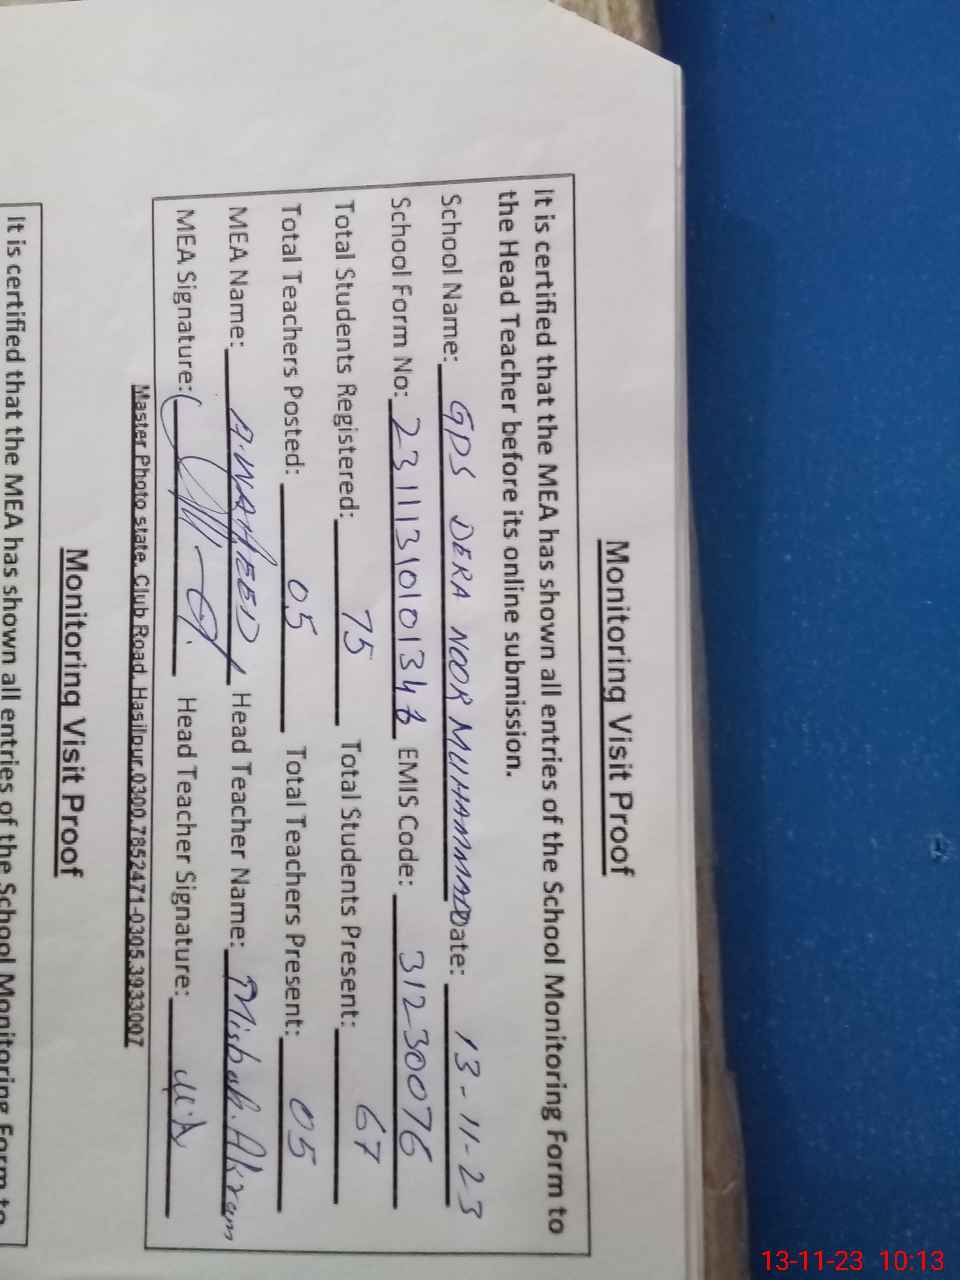 Monitoring Visit Proof
It is certified that the MEA has shown all entries of the School Monitoring Form to
the Head Teacher before its online submission.
School Name: GPS DERA NOOR MUHAMMAD Date: 13-11-23
School Form No: EMIS Code: 31230076
Total Students Registered: 75 Total Students Present: 67
Total Teachers Posted: 05 Total Teachers Present: 05
MEA Name: A.WAHEED Head Teacher Name: Misbah Akram
MEA Signature: Head Teacher Signature: M.A
Master Photo state, Club Road, Hasilpur.0300.7852471-0305.3933007
Monitoring Visit Proof
It is certified that the MEA has shown all entries of the School Monitoring Form to
13-11-23 10:13